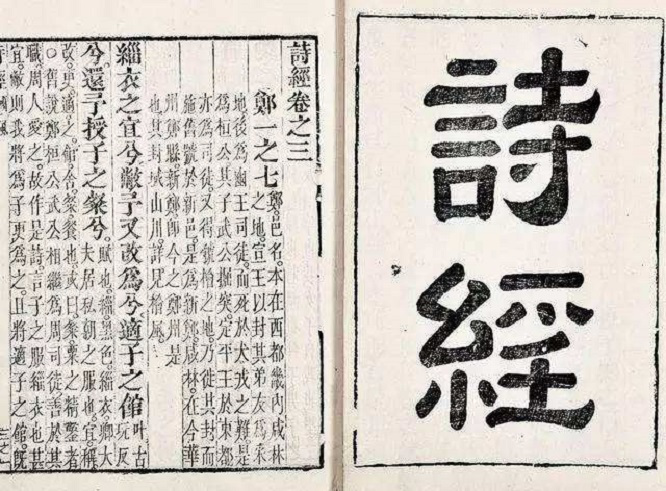 詩經
詩經卷之三
鄭一之七 鄭邑名。本在西都畿內咸林
之地。宣王以封其弟友為采
地。後為幽王司徒。而死於犬戎之難。是
為桓公。其子武公掘突。定平王於東都。
亦為司徒。又得虢檜之地。乃徙其封。而
施舊號於新邑。是為新鄭。咸林。在今華
州鄭縣。新鄭。即今之鄭州。是
也。其封域山川。詳見檜風。
緇衣之宜兮。敝予又改為兮。適子之館 叶古玩反
兮。還予授子之粲兮。 賦也。緇。黑色。緇衣。卿大
夫居私朝之服也。宜。稱
改。更。適。之。館。舍。粲。餐也。或曰。粲。粟之精鑿者
○舊說鄭桓公武公。相繼為周司徒。善於其
職。周人愛之。故作是詩。言子之服緇衣也甚
宜。敝。則我將為子更為之。且將適子之館。既